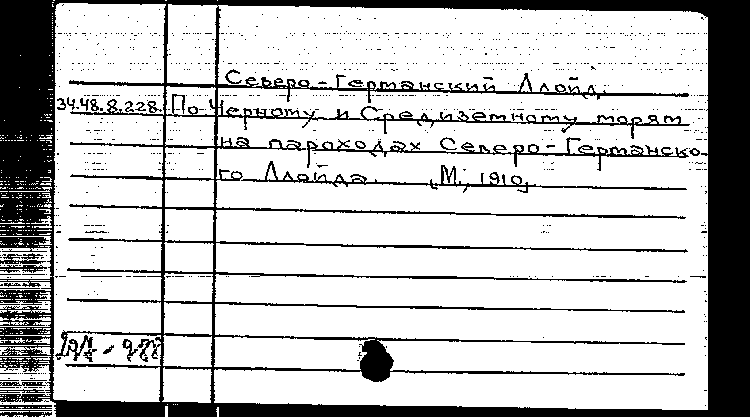 Северо-Германский Ллойд.
34.48.8.228. По Черному и Средиземному морям
на пароходах Северо-Германско-
го Ллойда. [М., 1910]